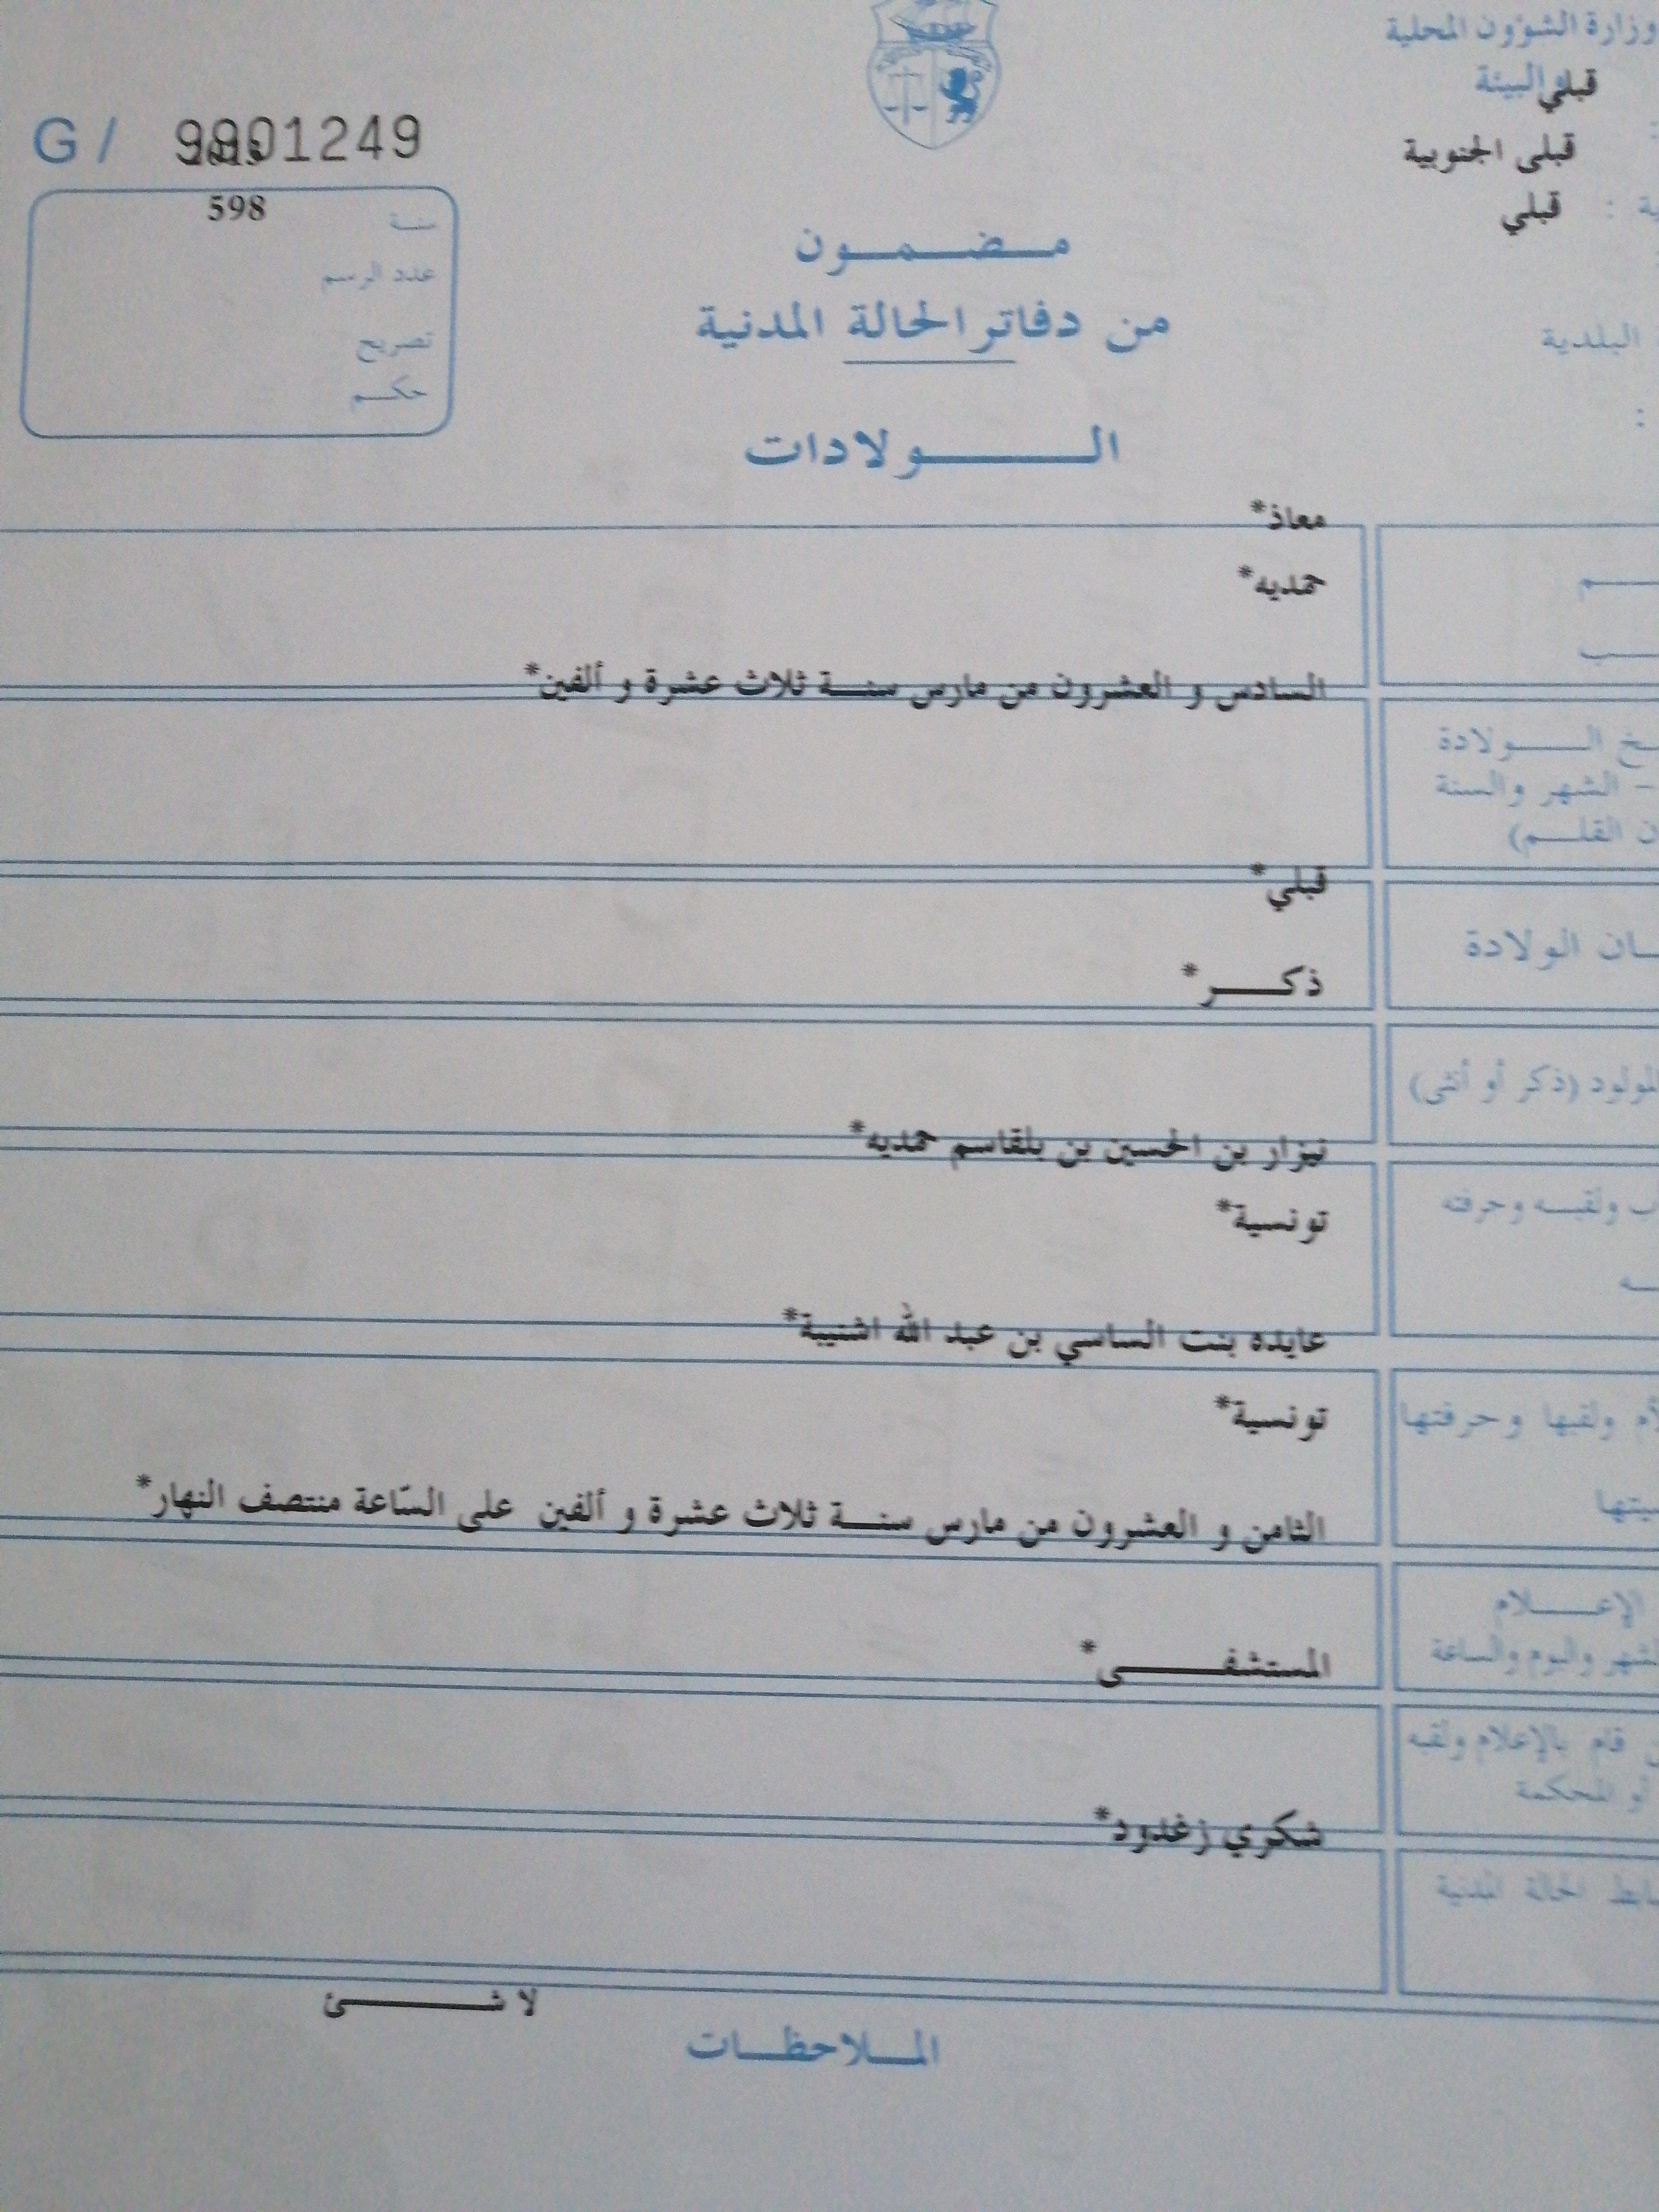 وزارة الشؤون المحلية
والبيئة
قبلي
قبلى الجنوبية
قبلي
البلدية
G / 9901249
598
سنة
عدد الرسم
تصريح
حكم
مضمون
من دفاتر الحالة المدنية
الولادات
معاذ*
حمديه*
السادس و العشرون من مارس سنة ثلاث عشرة و ألفين*
الولادة
- الشهر والسنة
القلم)
قبلي*
الولادة
ذكر*
(ذكر أو أنثى)
نيزار بن الحسين بن بلقاسم حمديه*
ولقبه وحرفته
تونسية*
عايده بنت الساسي بن عبد الله اشتيبة*
ولقبها وحرفتها
تونسية*
الثامن و العشرون من مارس سنة ثلاث عشرة و ألفين على السّاعة منتصف النهار*
الإعلام
واليوم والساعة
المستشفى*
قام بالإعلام ولقبه
أو المحكمة
شكري زغدود*
الحالة المدنية
لا شئ
الملاحظات